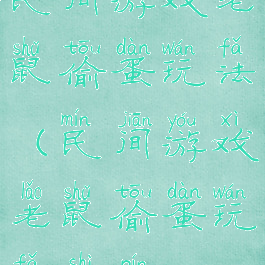 民间游戏老
shǔ tōu dàn wán fǎ
鼠偷蛋玩法
mín jiān yóu xì
（民间游戏
lǎo shǔ tōu dàn wán
老鼠偷蛋玩
fǎ shì pín